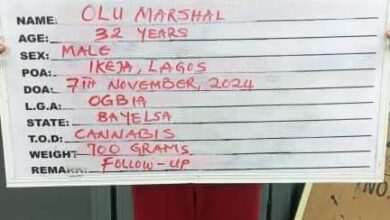 NAME: OLU MARSHAL
AGE: 32 YEARS
SEX: MALE
POA: IKEJA, LAGOS
DOA: 7TH NOVEMBER, 2024
L.G.A: OGBIA
STATE: BAYELSA
T.O.D: CANNABIS
WEIGHT 700 GRAMS
REMARK: FOLLOW-UP